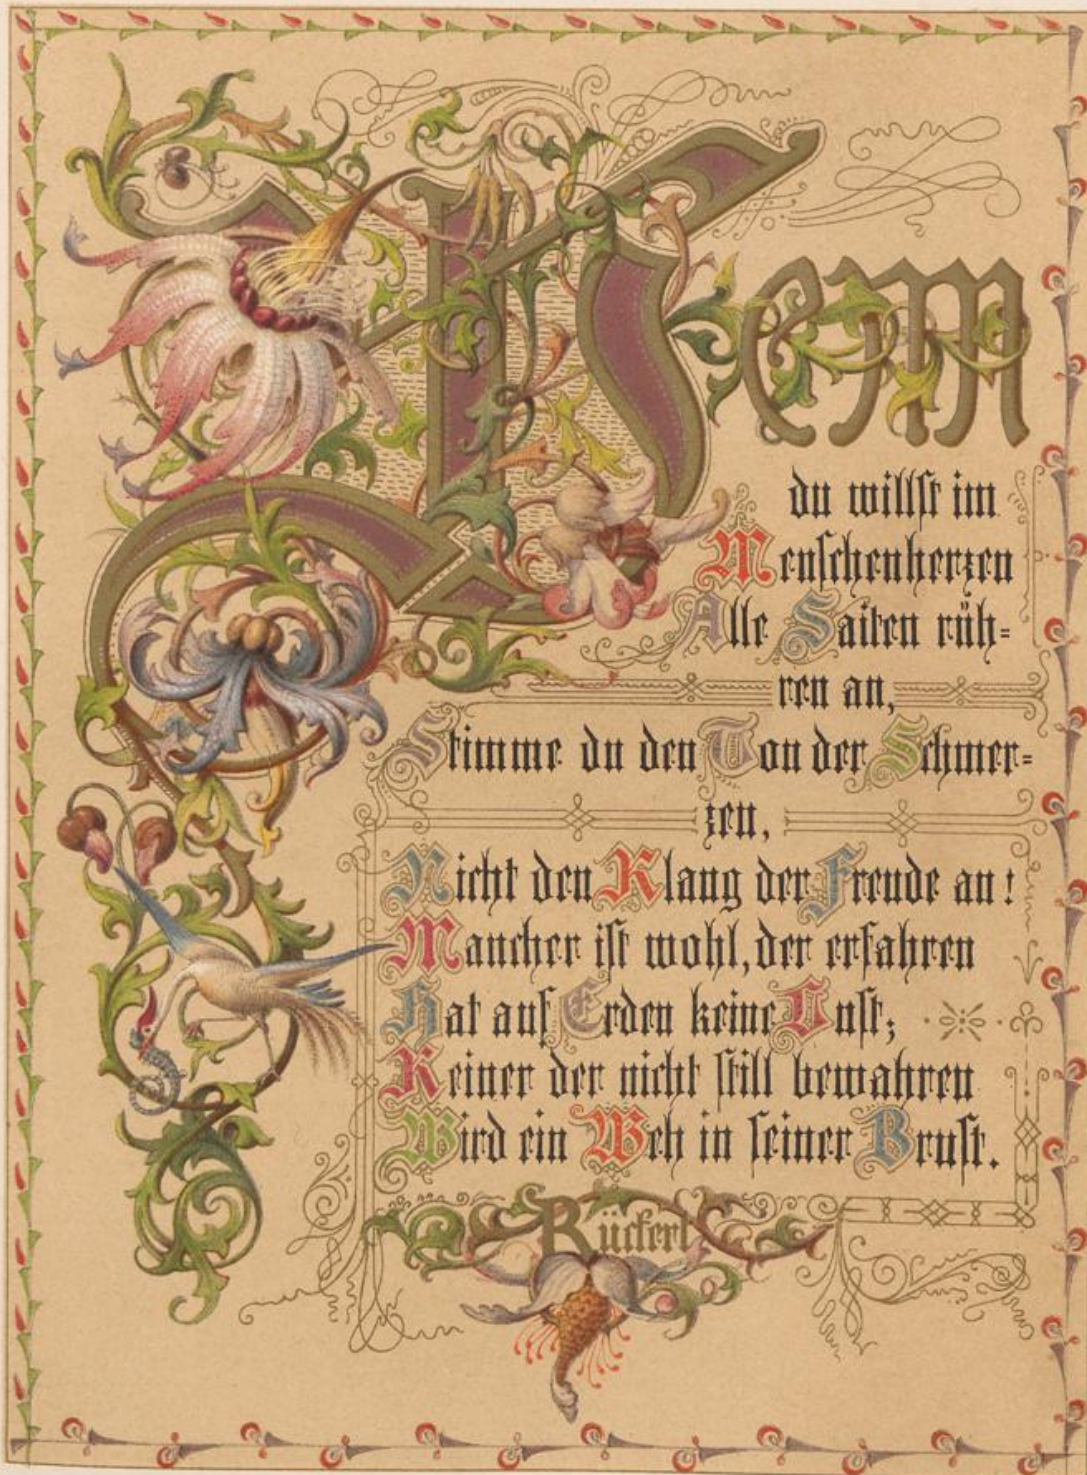 Wenn
du willst im
Menschenherzen
Alle Saiten rüh=
ren an,
Stimme du den Ton der Schmer=
zen,
Nicht den Klang der Freude an!
Mancher ist wohl, der erfahren
Hat auf Erden keine Lust;
Keiner der nicht still bewahren
Wird ein Weh in seiner Brust.
Rückert